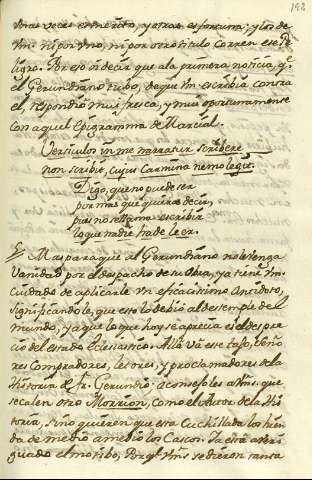 152
unas veces es merito, y otras es fortuna; y los de
Vm. ni por uno, ni por otro titulo corren ese Pe-
ligro. Por eso oí decir que a la primera noticia, qe.
el Gerundiano tubo, de que Vm escribia contra
el, respondio mui fresca, y mui oportunamente
con aquel Epigramma de Marcial.
Versiculos in me narratur scribere
non scribit, cujus Carmina nemo legit.
Digo, que no puede ser
por mas que quieran decir,
pues no se llama escribir
lo que nadie ha de leer.
Mas para que al Gerundiano no le venga
vanidad por el despacho de su Obra, ya tiene Vm.
cuidado de aplicarle un eficacisimo Antidoto,
significandole, que esto lo debió al destemple del
mundo, ya que lo que hoy se aprecia es el despre-
cio del estado Eclesiastico. Allá vá ese tajo, Seño
res Compradores, letores, y proclamadores de la
Historia de fr. Gerundio; aconsejoles a Vms. que
se calen otro Morrion, como el Autor de la His
toria, sino quieren que esta Cuchillada los hien
da de medio a medio los Cascos. Ya está averi
guado el motibo, Porqe. Vms se dieron tanta